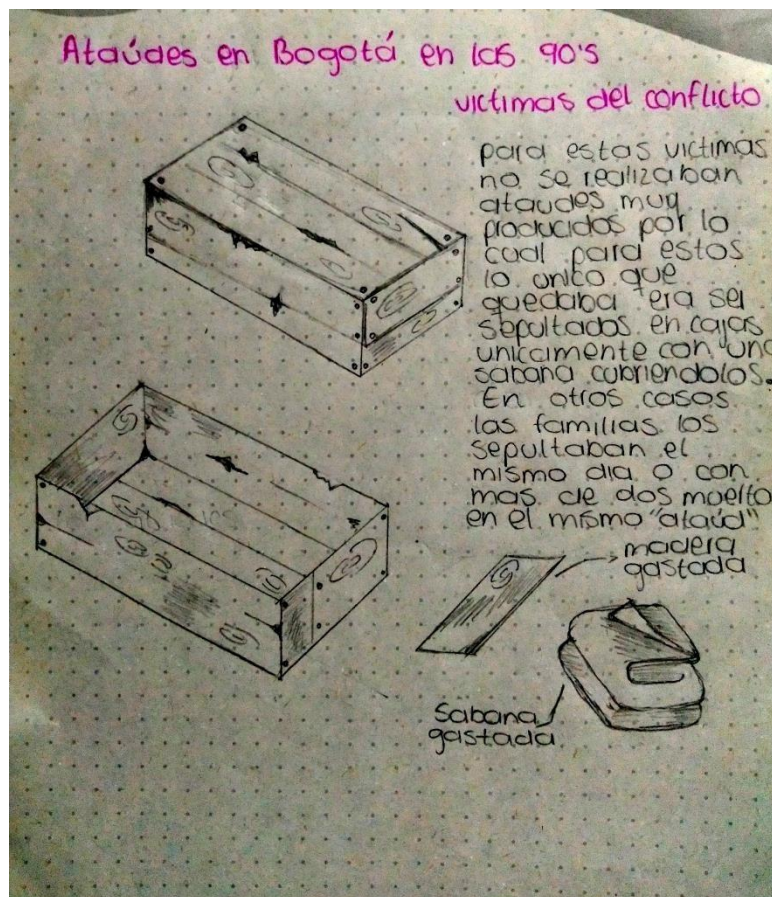 Ataúdes en Bogotá en los 90's
victimas del conflicto
para estas victimas
no se realizaban
ataudes muy
producidos por lo
cual para estos
lo unico que
quedaba era ser
sepultados en cajas
unicamente con una
sabana cubriendolos.
En otros casos
las familias los
sepultaban el
mismo dia o con
mas de dos muerto
en el mismo "ataúd"
madera
gastada
Sabana
gastada